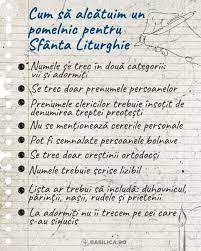 Cum să alcătuim un
pomelnic pentru
Sfânta Liturghie
Numele se trec în două categorii:
vii și adormiți
Se trec doar prenumele persoanelor
Prenumele clericilor trebuie însoțit de
denumirea treptei preoțești
Nu se menționează cererile personale
Pot fi semnalate persoanele bolnave
Se trec doar creștinii ortodocși
Numele trebuie scrise lizibil
Lista ar trebui să includă: duhovnicul,
părinții, nașii, rudele și prietenii
La adormiți nu îi trecem pe cei care
s-au sinucis
BASILICA.RO